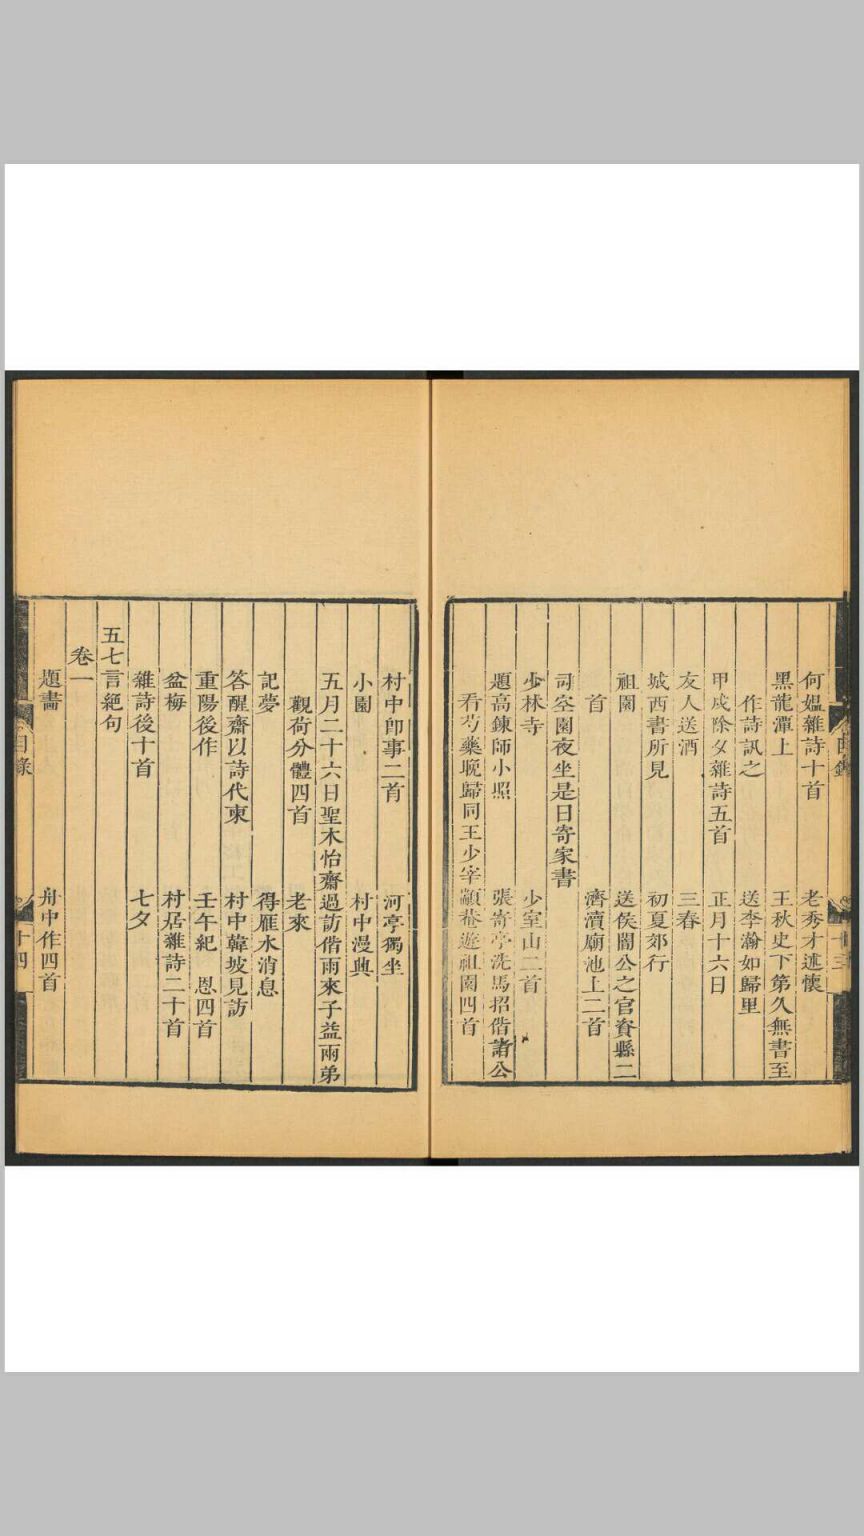 何媼雜詩十首　老秀才述懷
黑龍潭上　王秋史下第久無書至
作詩訊之　送李瀚如歸里
甲戌除夕雜詩五首　正月十六日
友人送酒　三春
城西書所見　初夏郊行
祖園　送侯閣公之官資縣二
首　濟瀆廟池上二首
司空園夜坐是日寄家書
少林寺　少室山二首
題高鍊師小照　張寄亭洗馬招偕諸公
看芍藥晚歸同王少宰顓菴遊祖園四首
目錄
十三
村中卽事二首　河亭獨坐
小園　村中漫興
五月二十六日聖木怡齋過訪偕雨來子益兩弟
觀荷分體四首　老來
記夢　得雁水消息
答醒齋以詩代柬　村中韓坡見訪
重陽後作　壬午紀　恩四首
盆梅　村居雜詩二十首
雜詩後十首　七夕
五七言絕句
卷一
題畫　舟中作四首
目錄
十四